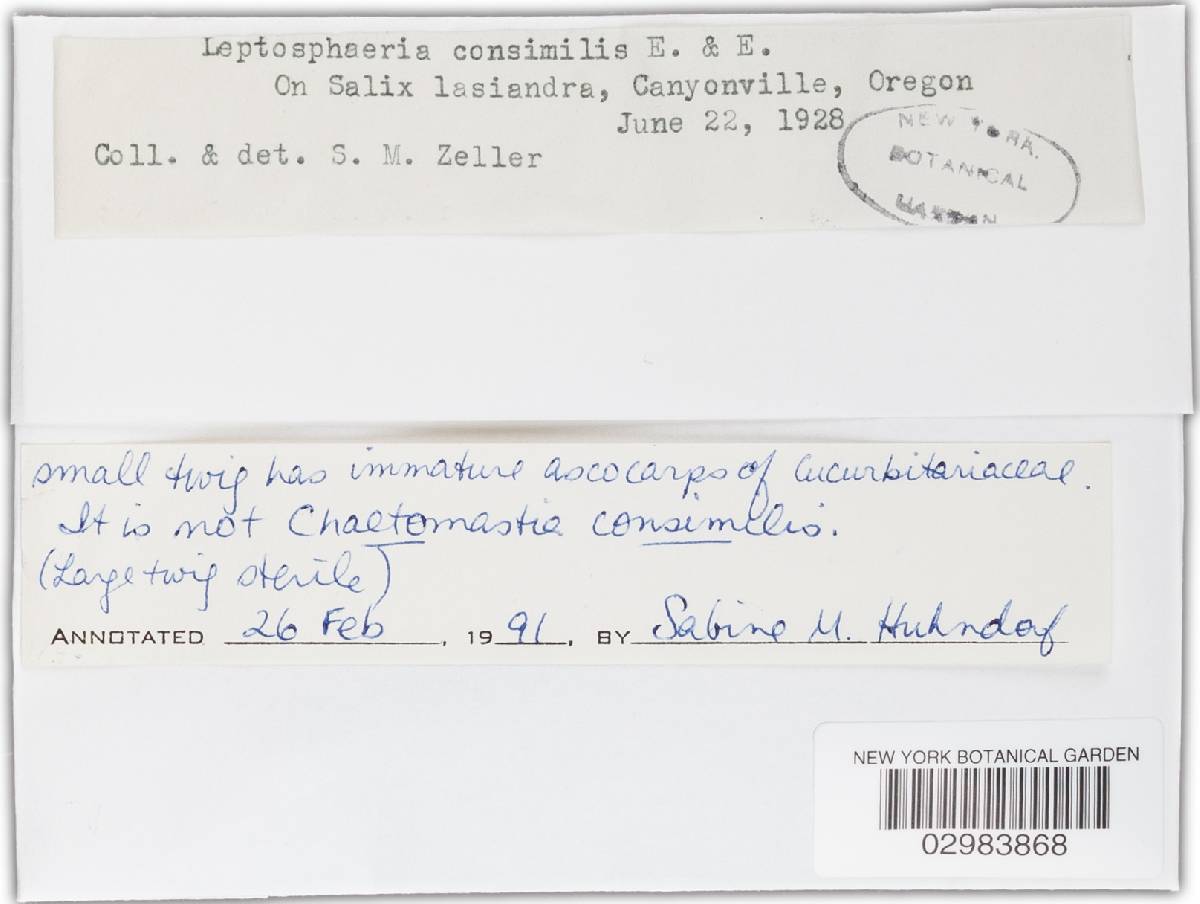 Leptosphaeria consimilis E. & E.
On Salix lasiandra, Canyonville, Oregon
June 22, 1928
Coll. & det. S. M. Zeller
NEW YORK
BOTANICAL
GARDEN
small twig has immature ascocarps of Cucurbitariaceae.
It is not Chaetomastia consimilis.
(Large twig sterile)
ANNOTATED 26 Feb, 1991, BY Sabine M. Huhndorf
NEW YORK BOTANICAL GARDEN
02983868